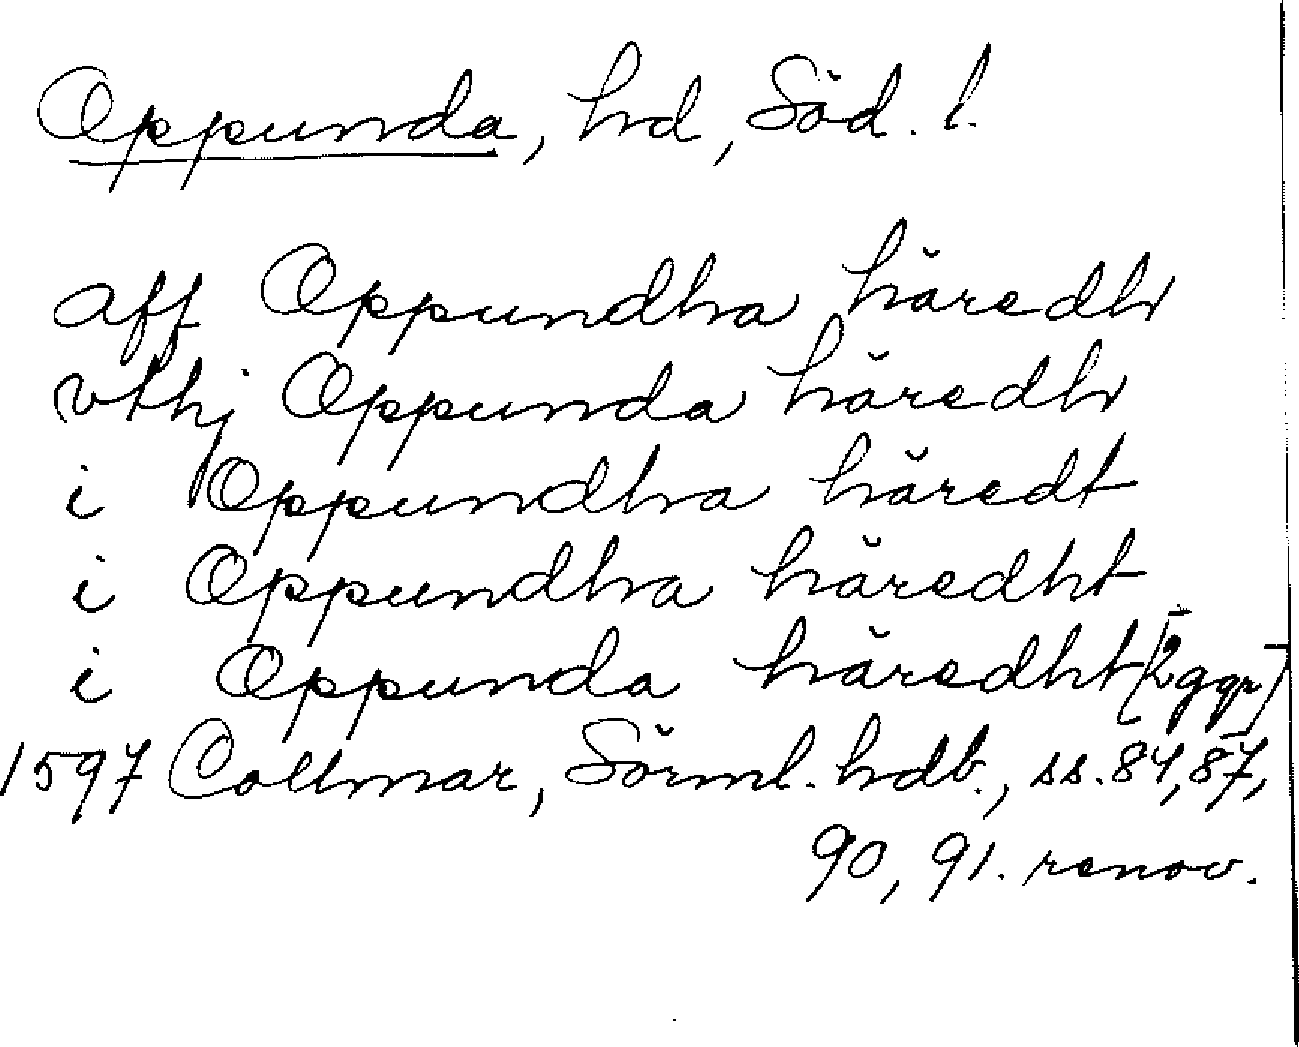 Oppunda, hd, Söd. l.
aff Oppundha häredh
vthj Oppunda häredh
i Oppundha häredt
i Oppundha häredht
i Oppunda häredht [2 ggr]
1597 Collmar, Sörml. hdb., ss. 84, 87,
90, 91. renov.